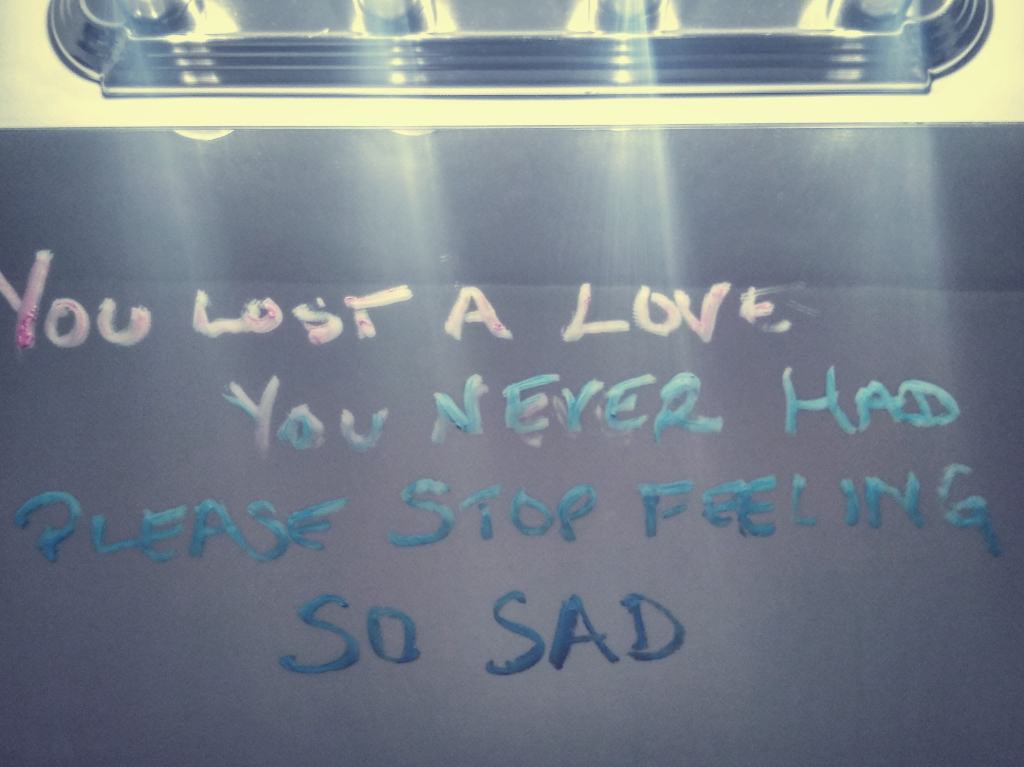 YOU LOST A LOVE
YOU NEVER HAD
PLEASE STOP FEELING
SO SAD